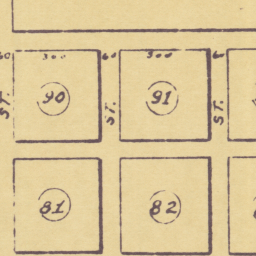 60 300 60 300 6
90 91
ST. ST. ST.
81 82